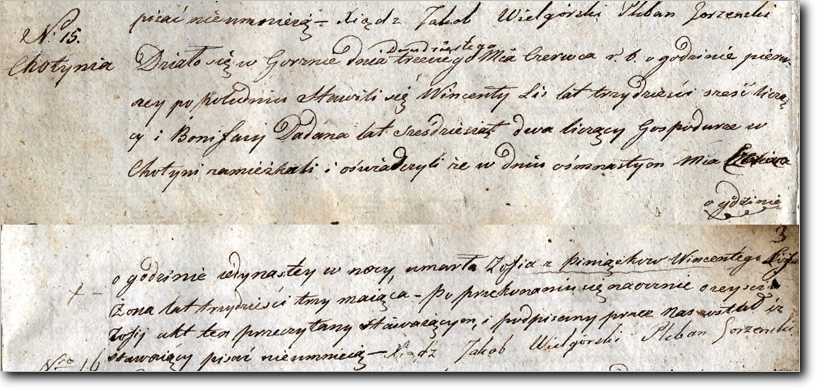 pisać nieumieją – Xiądz Jakob Wielgórski Pleban Gorzenski
N° 15.
Chotynia
dwudziestego
Działo się w Gorznie dnia trzeciego Mia Czerwca r. b. o godzinie pierw
szey po południu Stawili się Wincenty Lis lat trzydzieści sześć licząc
cy i Bonifacy Dadana lat sześdziesiąt dwa liczący Gospodarze w
Chotyni zamieżkali i oświadczyli że w dniu ośmnastym Mia Czerwca
o godzinie
3
o godzinie iedynastey w nocy, umarła Zofia z Pimiąckow Wincentego Lisa
Żona lat trzydzieści trzy maiąca – Po przekonaniu się naocznie o zeyściu
Zofij akt ten przeczytany Stawaiącym, i podpisany przez Nas został iż
Stawaiący pisać nieumieią – Xiądz Jakob Wielgórski Pleban Gorzenski
Nro 16